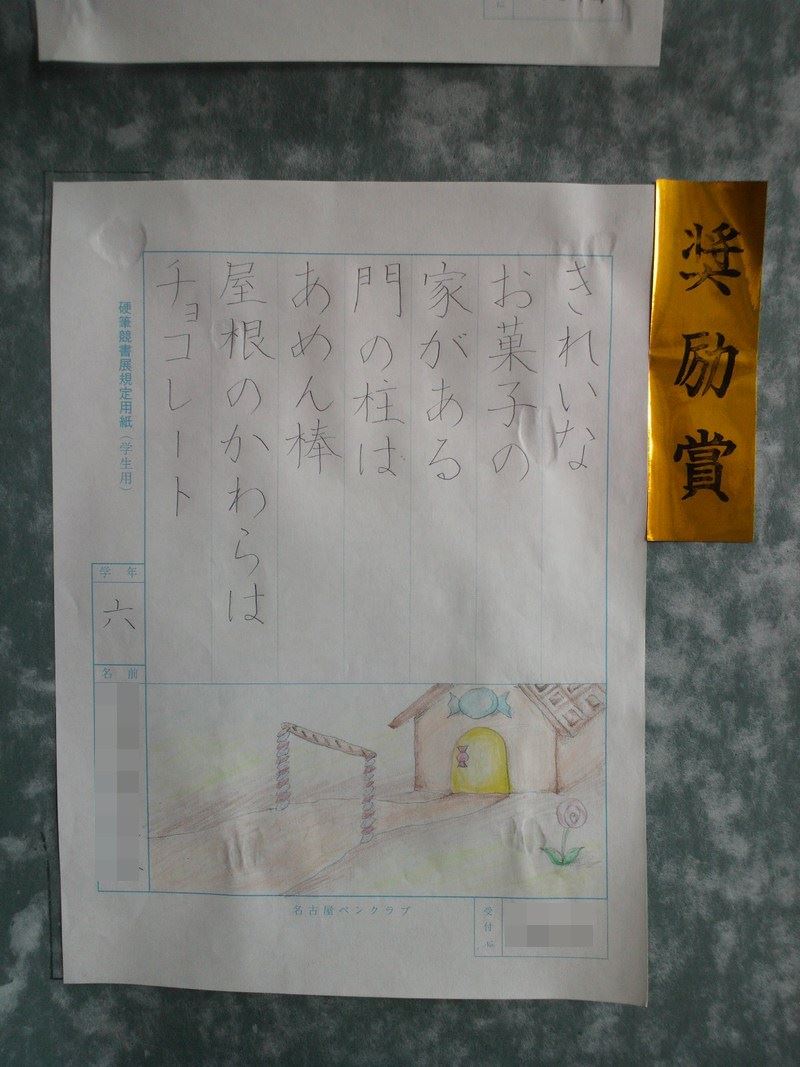 奨励賞
きれいな
お菓子の
家がある
門の柱は
あめん棒
屋根のかわらは
チョコレート
硬筆競書展規定用紙(学生用)
学年
六
名前
名古屋ペンクラブ
受付